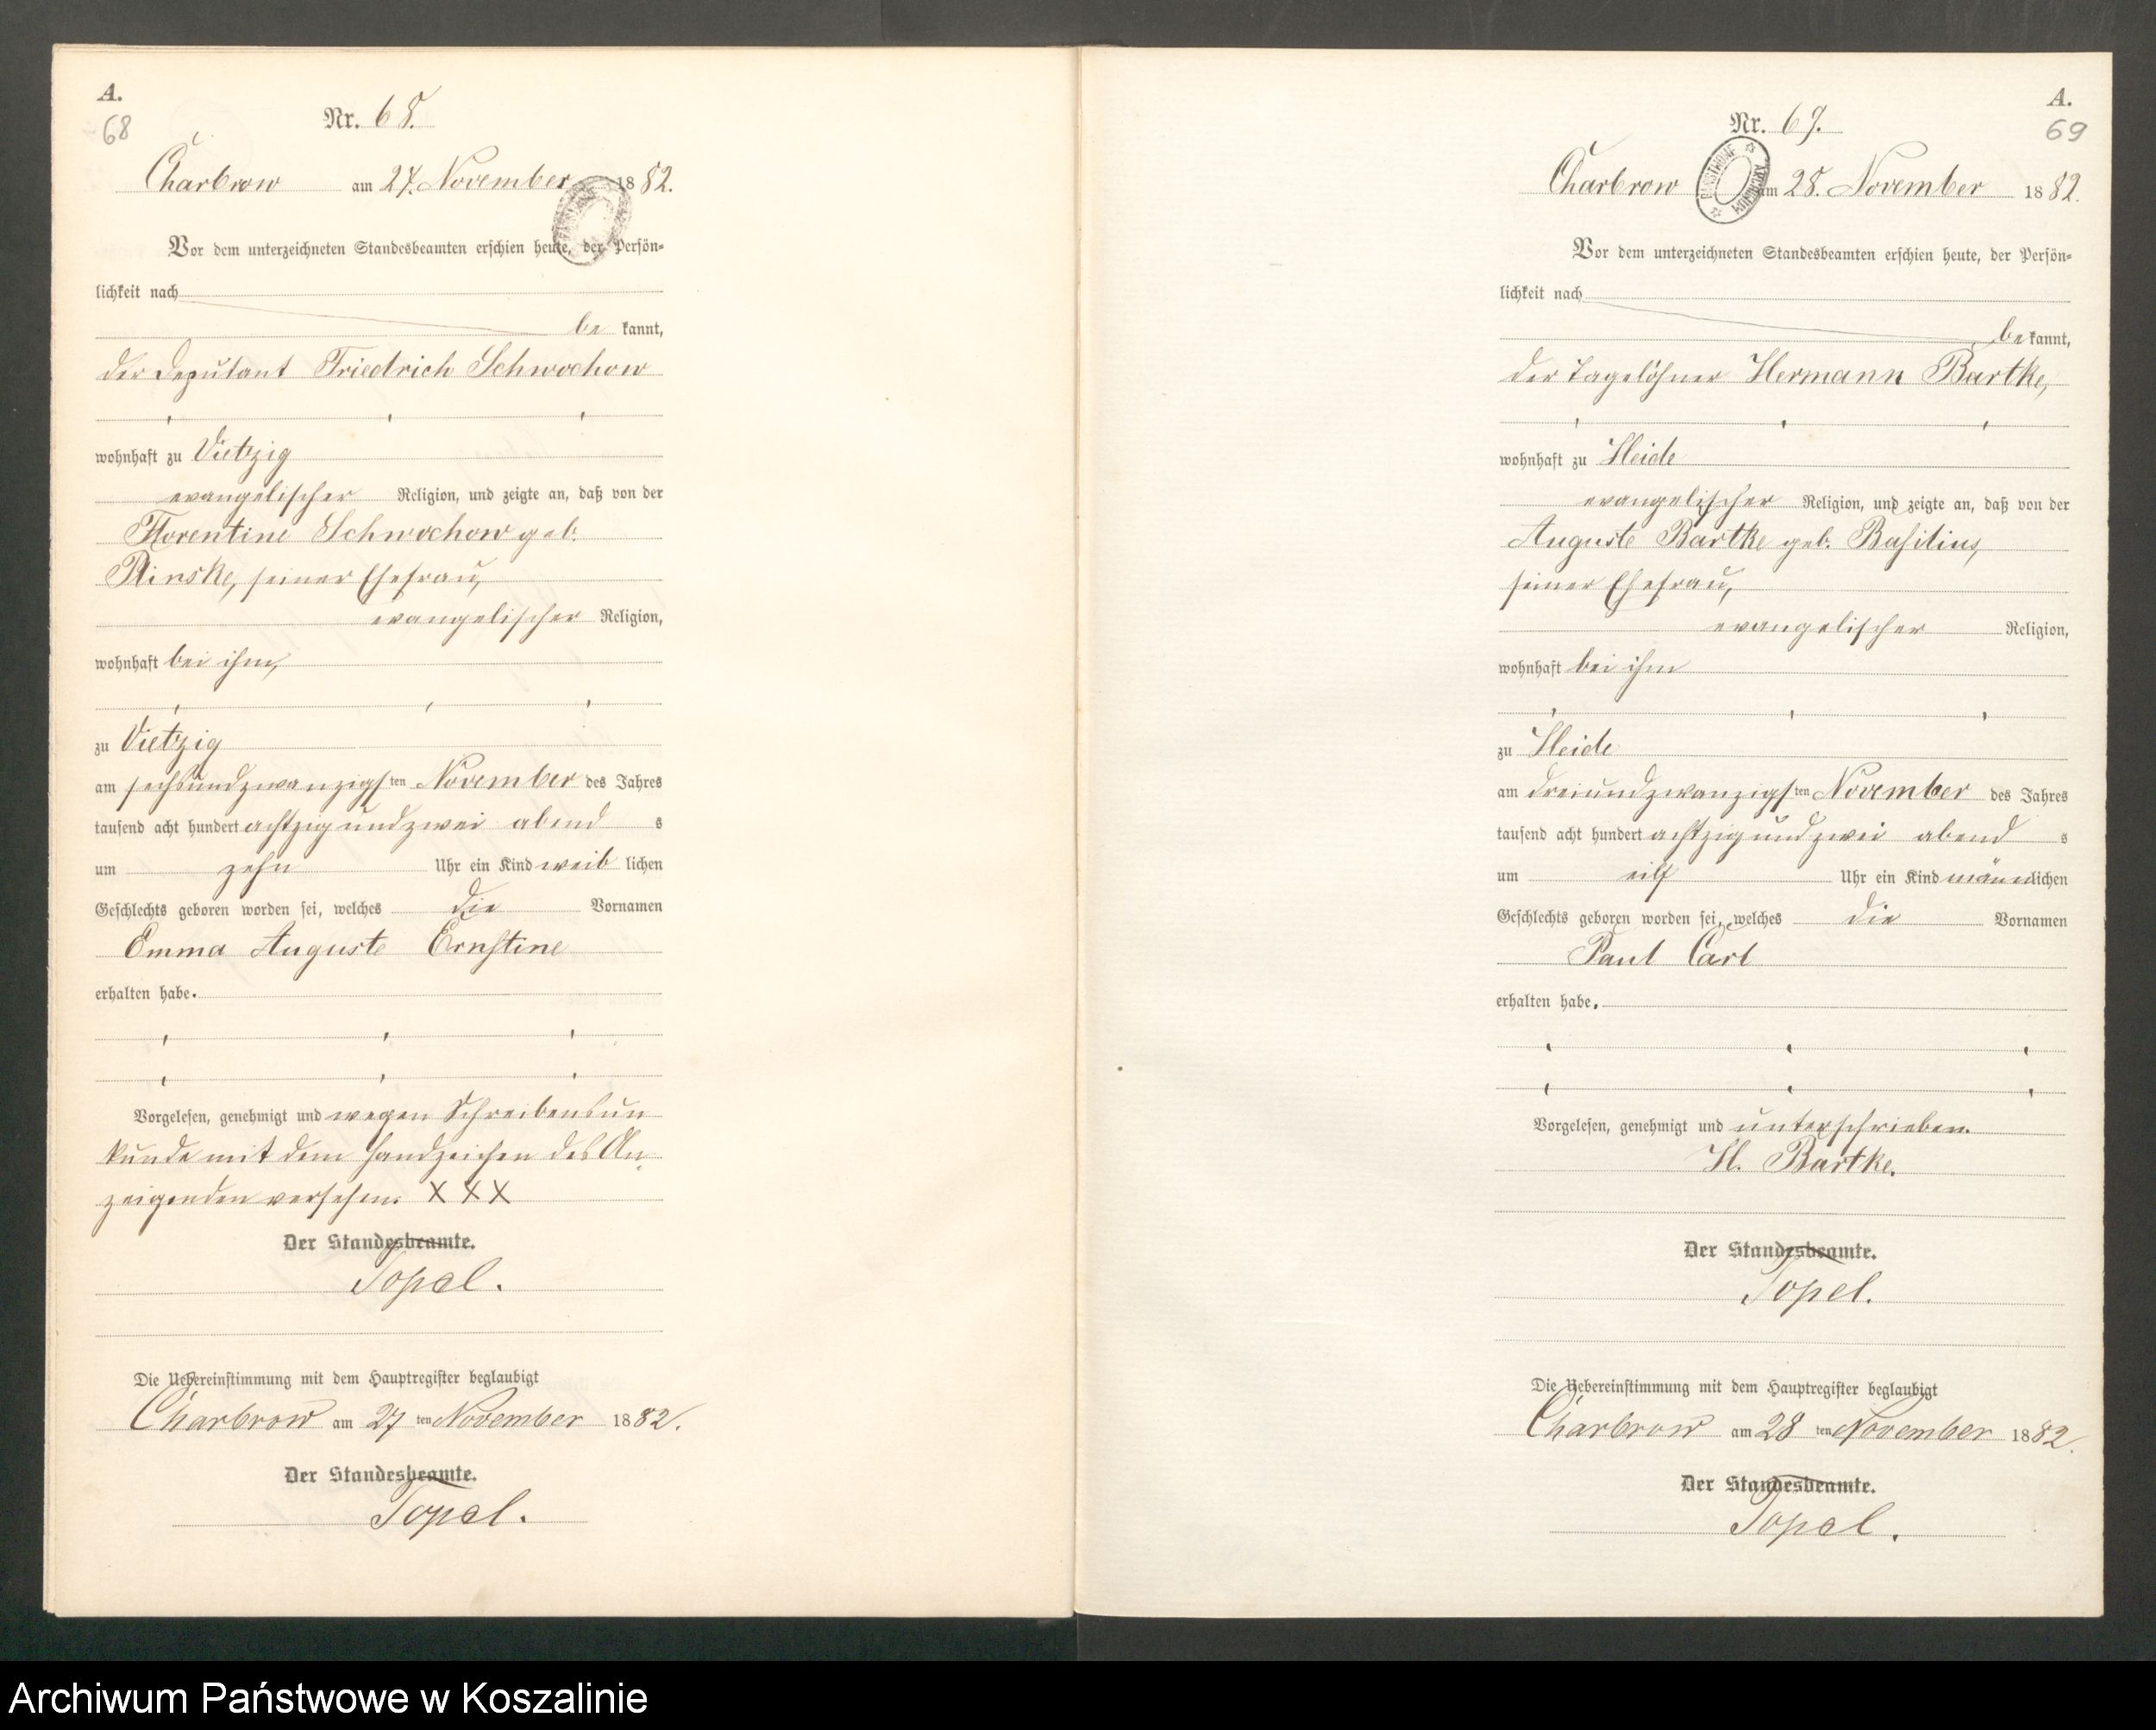 A.
68
Nr. 68.
Charbrow am 27. November 1882.
Vor dem unterzeichneten Standesbeamten erschien heute, der Persön-
lichkeit nach
be kannt,
der Deputant Friedrich Schwochow
wohnhaft zu Vietzig
evangelischer Religion, und zeigte an, daß von der
Florentine Schwochow geb.
Rinske, seiner Ehefrau,
evangelischer Religion,
wohnhaft bei ihm,
zu Vietzig
am sechsundzwanzigsten November des Jahres
tausend acht hundert achtzig und zwei abend s
um zehn Uhr ein Kind weib lichen
Geschlechts geboren worden sei, welches die Vornamen
Emma Auguste Ernstine
erhalten habe.
Vorgelesen, genehmigt und wegen Schreibensun
kunde mit dem Handzeichen des An
zeigenden versehen. X X X
Der Standesbeamte.
Topel.
Die Uebereinstimmung mit dem Hauptregister beglaubigt
Charbrow am 27 ten November 1882.
Der Standesbeamte.
Topel.
A.
69
Nr. 69.
Charbrow am 28. November 1882.
Vor dem unterzeichneten Standesbeamten erschien heute, der Persön-
lichkeit nach
be kannt,
der Tagelöhner Hermann Bartke,
wohnhaft zu Heide
evangelischer Religion, und zeigte an, daß von der
Auguste Bartke geb. Basilius,
seiner Ehefrau,
evangelischer Religion,
wohnhaft bei ihm
zu Heide
am dreiundzwanzigsten November des Jahres
tausend acht hundert achtzig und zwei abend s
um eilf Uhr ein Kind männlichen
Geschlechts geboren worden sei, welches die Vornamen
Paul Carl
erhalten habe.
Vorgelesen, genehmigt und unterschrieben.
H. Bartke.
Der Standesbeamte.
Topel.
Die Uebereinstimmung mit dem Hauptregister beglaubigt
Charbrow am 28 ten November 1882.
Der Standesbeamte.
Topel.
Archiwum Państwowe w Koszalinie